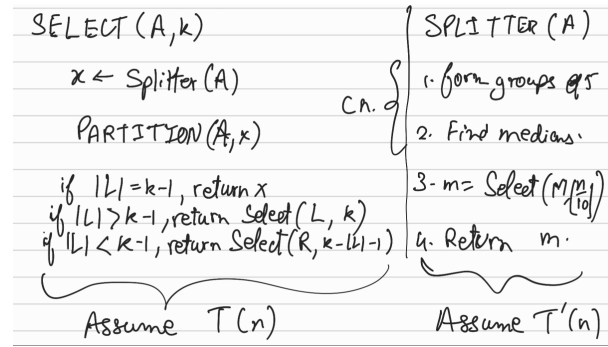 SELECT (A,k)
x ← Splitter (A)
PARTITION (A,x)
if |L| = k-1, return x
if |L| > k-1, return Select (L, k)
if |L| < k-1, return Select (R, k-|L|-1)
Assume T(n)
cn.
SPLITTER (A)
1. form groups of 5
2. Find medians.
3- m = Select (M, ⌈n/10⌉)
4. Return m.
Assume T'(n)